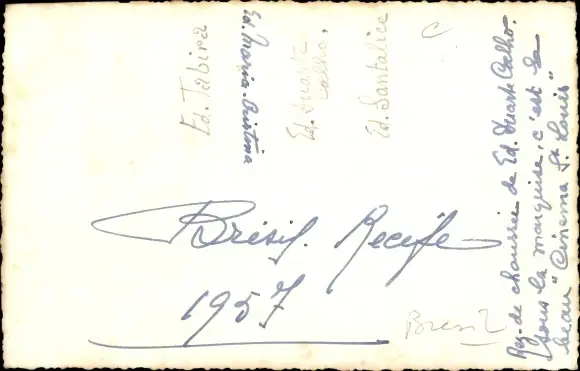 Ed. Tabira
Ed. Maria-Cristina
Ed. Duarte
Coelho.
Ed. Santalice
C
Brésil. Recife
1957
Bresil
Rez-de chaussée de Ed. Duarte Coelho.
Sous la marquise, c'est le
beau "Cinema St. Louis"